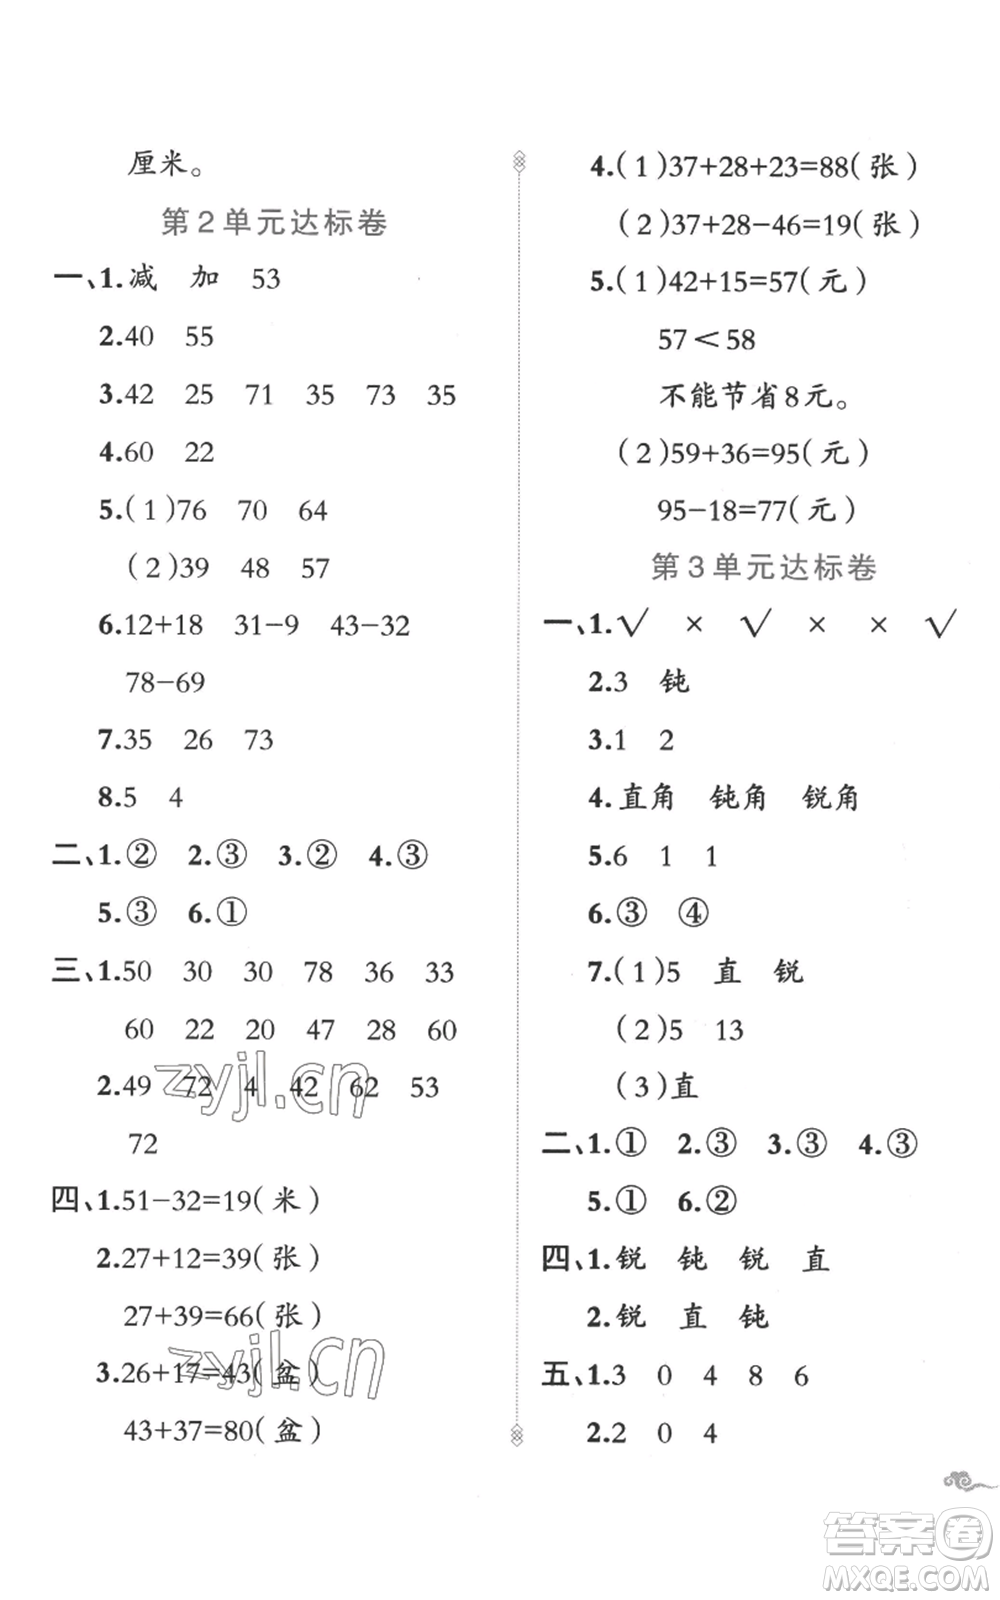 厘米。
第2单元达标卷
一、1.减 加 53
2.40 55
3.42 25 71 35 73 35
4.60 22
5.(1)76 70 64
(2)39 48 57
6.12+18 31−9 43−32
78−69
7.35 26 73
8.5 4
二、1.② 2.③ 3.② 4.③
5.③ 6.①
三、1.50 30 30 78 36 33
60 22 20 47 28 60
2.49 72 4 42 62 53
72
四、1.51−32=19(米)
2.27+12=39(张)
27+39=66(张)
3.26+17=43(盆)
43+37=80(盆)
4.(1)37+28+23=88(张)
(2)37+28−46=19(张)
5.(1)42+15=57(元)
57<58
不能节省8元。
(2)59+36=95(元)
95−18=77(元)
第3单元达标卷
一、1.√ × √ × × √
2.3 钝
3.1 2
4.直角 钝角 锐角
5.6 1 1
6.③ ④
7.(1)5 直 锐
(2)5 13
(3)直
二、1.① 2.③ 3.③ 4.③
5.① 6.②
四、1.锐 钝 锐 直
2.锐 直 钝
五、1.3 0 4 8 6
2.2 0 4
zyjl.cn
zyjl.cn
答案卷
MXQE.COM